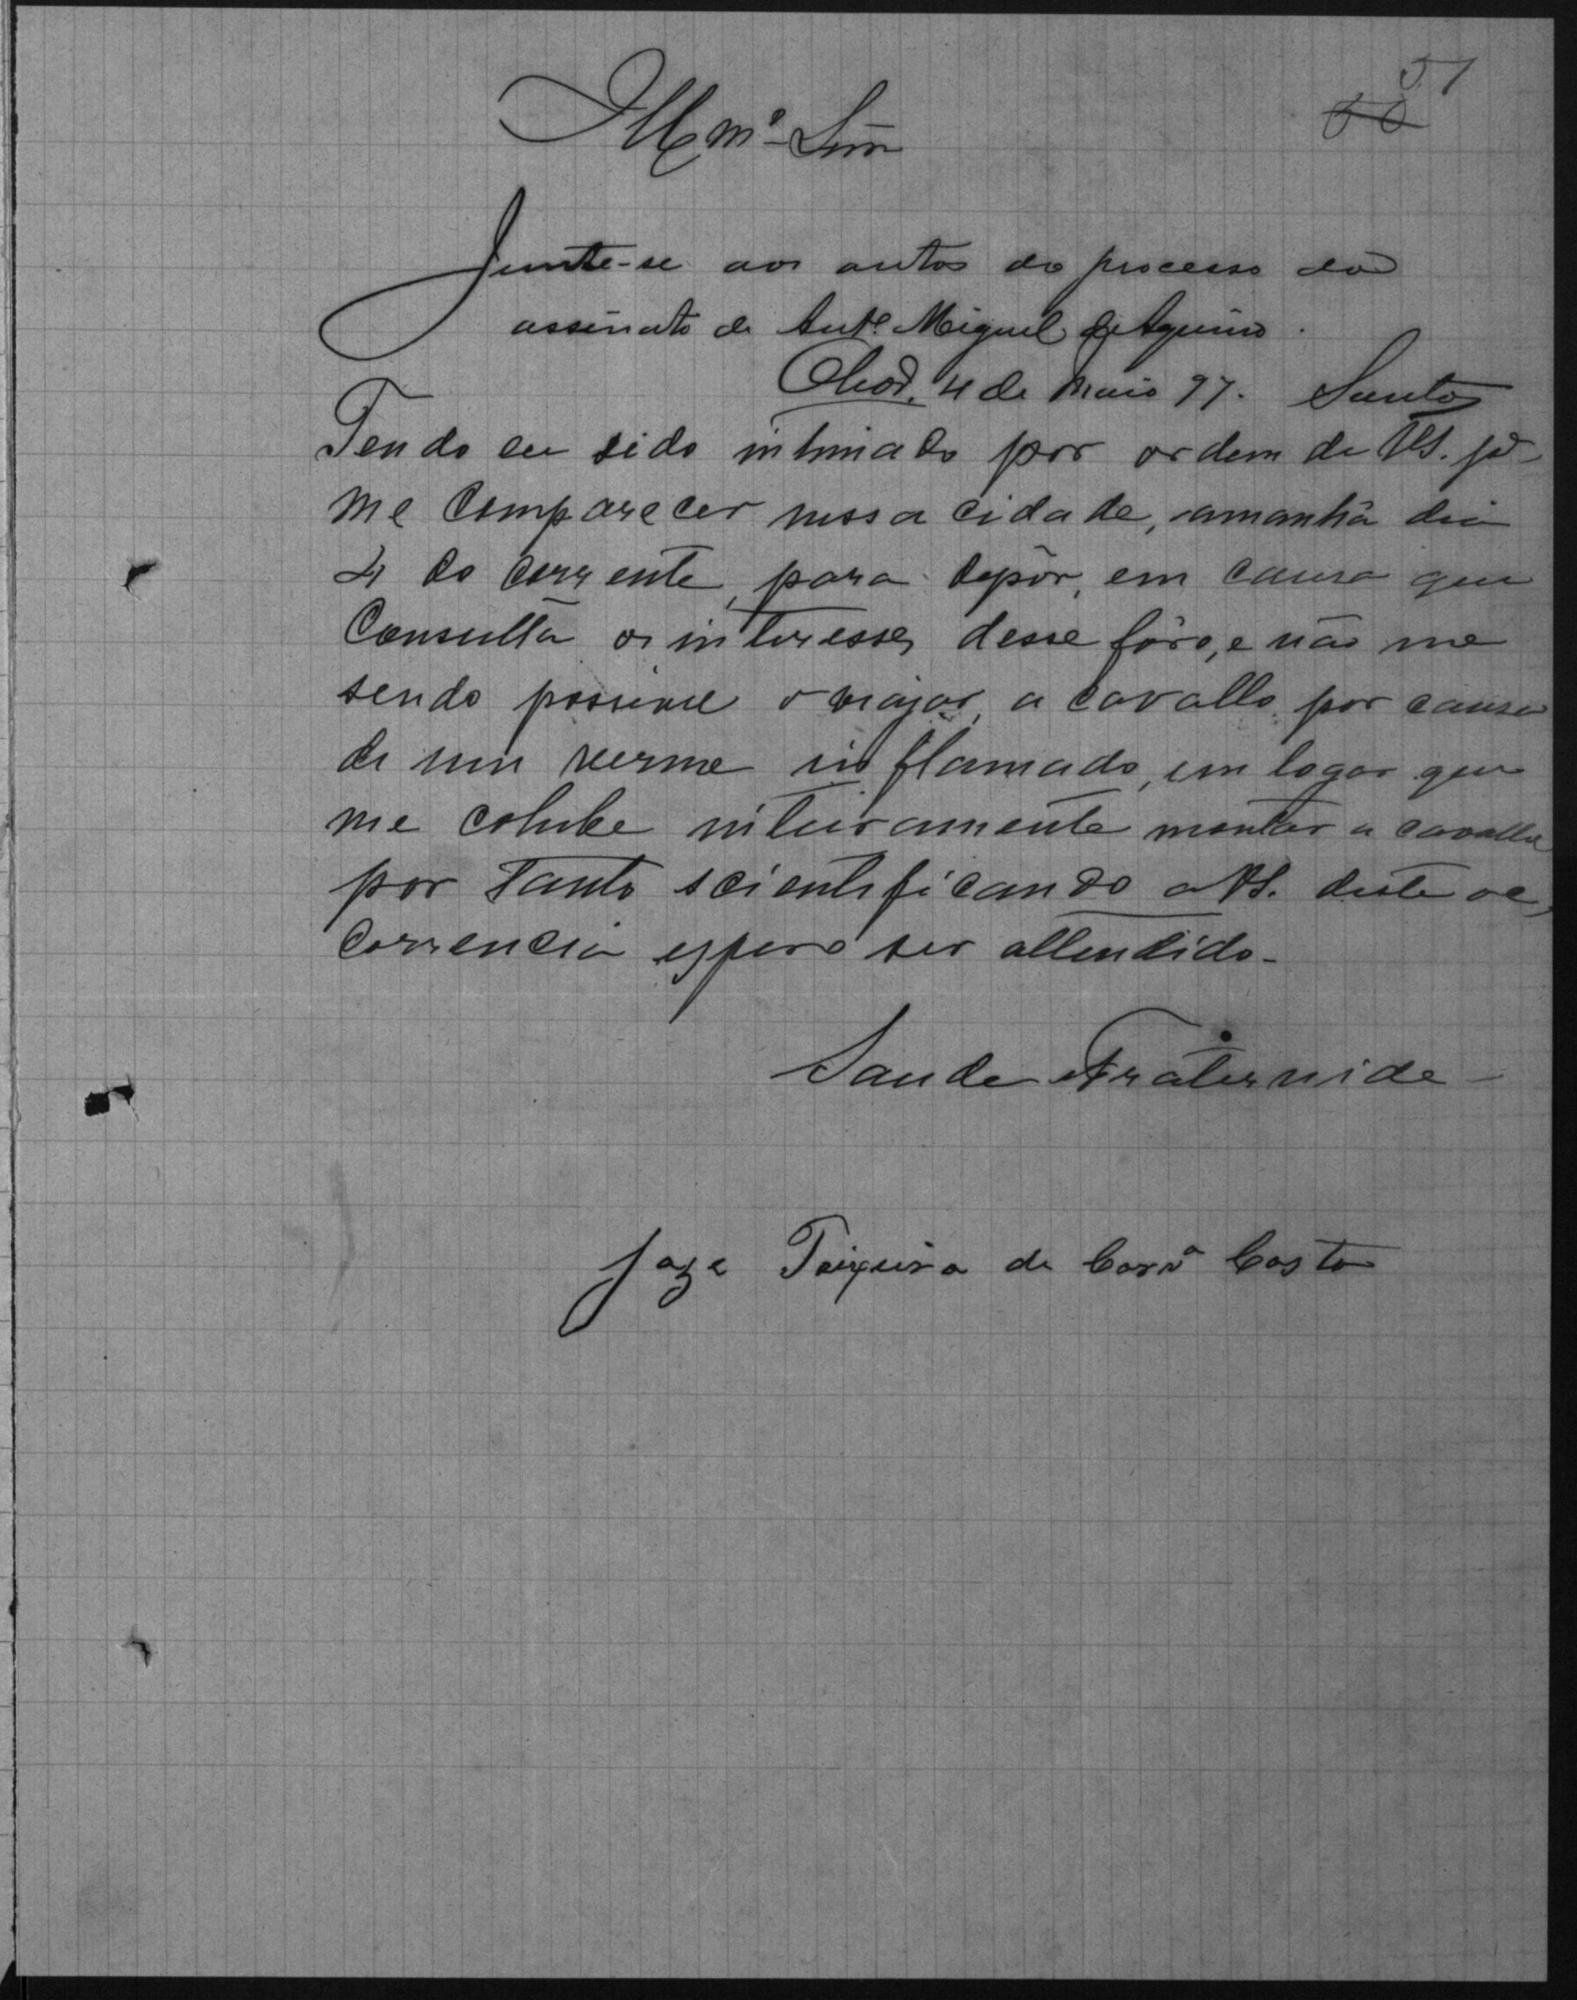 51
60
Illmº Snr
Junte-se aos autos do processo do
assinato de Antº Miguel de Aquino.
4 de Maio 97. Santos
Tendo eu sido intimado por ordem de VS. pª
me comparecer nessa cidade, amanhã dia
4 do corrente, para depôr, em causa que
Consulta os interesses desse fôro, e não me
sendo possivel o viajar, a cavallo por causa
de um verme inflamado, em logar que
me cohibe inteiramente montar a cavallo
por tanto scientificando a VS. desta oc,
correncia espero ser attendido.
Saude e Fraternide
Jose Teixeira de Carvº Costa